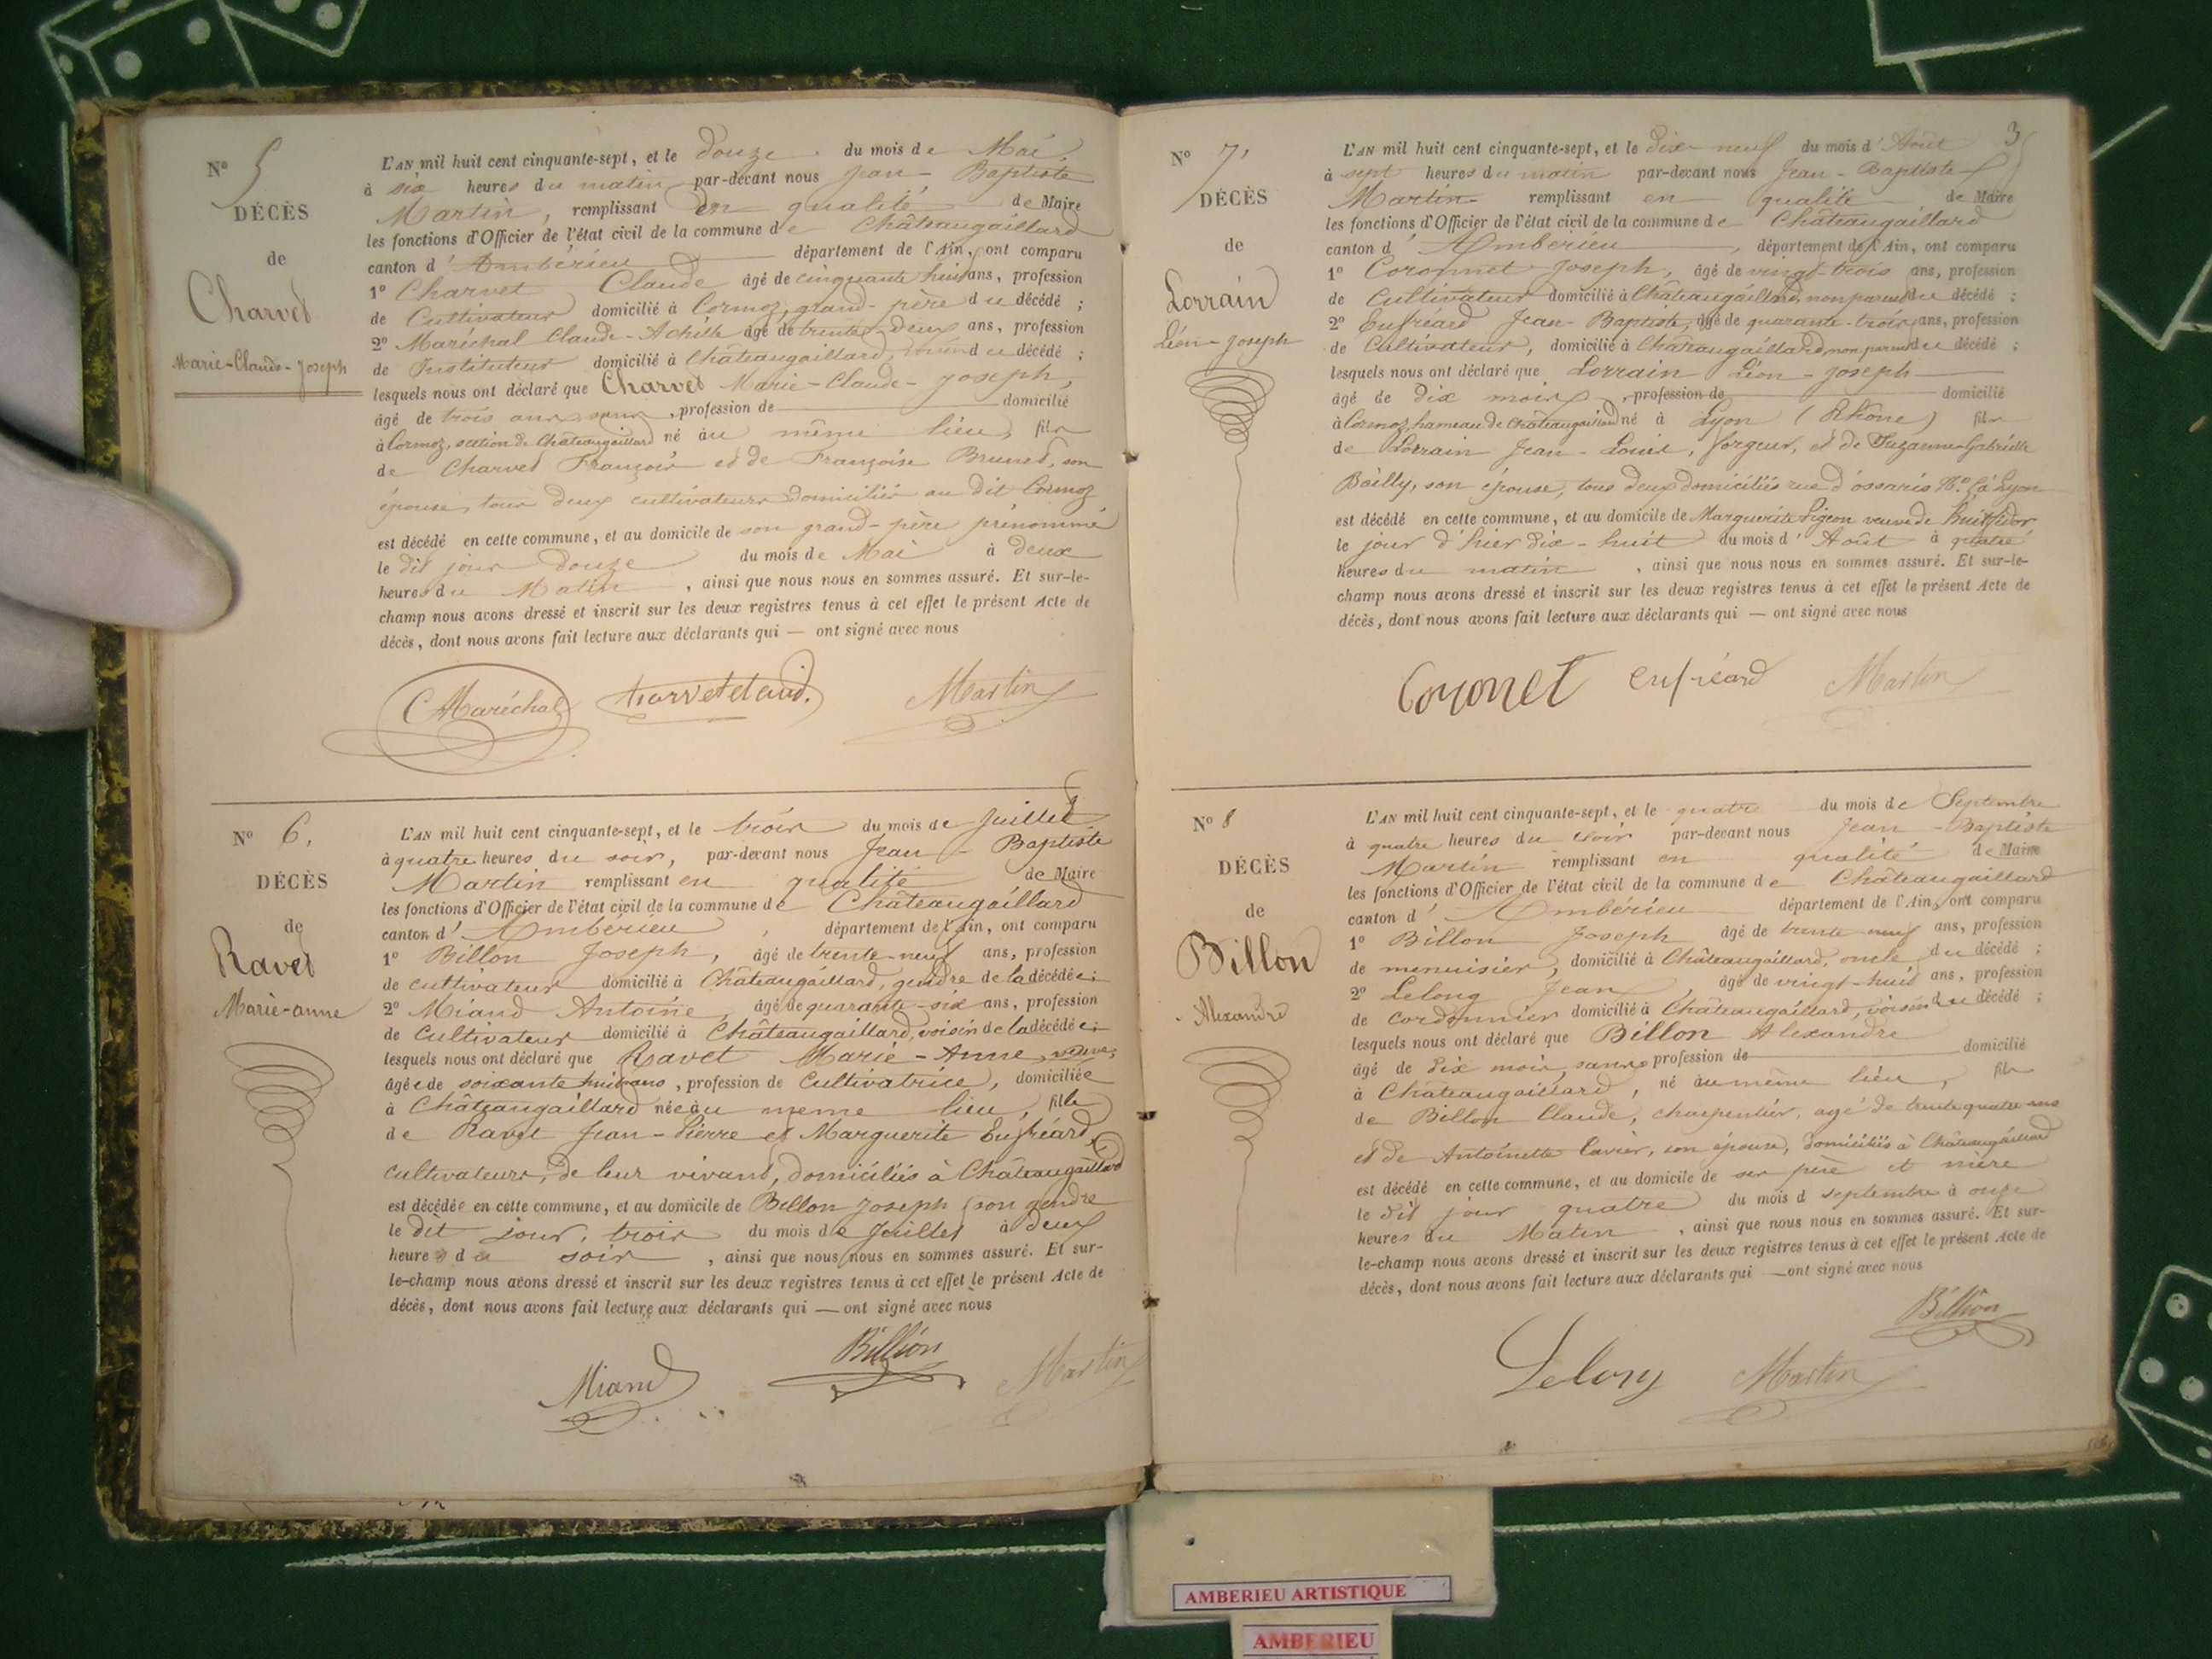 Nº 5
DÉCÈS
de
Charvet
Marie-Claude-Joseph
L'AN mil huit cent cinquante-sept, et le douze du mois de Mai,
à six heures du matin par-devant nous Jean-Baptiste
Martin, remplissant en qualité de Maire
les fonctions d'Officier de l'état civil de la commune de Châteaugaillard
canton d'Ambérieu département de l'Ain, ont comparu
1º Charvet Claude âgé de cinquante huit ans, profession
de Cultivateur domicilié à Cormoz, grand-père du décédé ;
2º Maréchal Claude-Achille âgé de trente-deux ans, profession
de Instituteur domicilié à Châteaugaillard, du décédé ;
lesquels nous ont déclaré que Charvet Marie-Claude-Joseph,
âgé de trois ans, sans, profession de domicilié
à Cormoz, section de Châteaugaillard né au même lieu, fils
de Charvet François et de Françoise Brunet, son
épouse, tous deux cultivateurs domiciliés au dit Cormoz
est décédé en cette commune, et au domicile de son grand-père prénommé
le dit jour douze du mois de Mai à deux
heures du Matin, ainsi que nous nous en sommes assuré. Et sur-le-
champ nous avons dressé et inscrit sur les deux registres tenus à cet effet le présent Acte de
décès, dont nous avons fait lecture aux déclarants qui — ont signé avec nous
C Maréchal Martin
Nº 6.
DÉCÈS
de
Ravet
Marie-anne
L'AN mil huit cent cinquante-sept, et le trois du mois de Juillet
à quatre heures du soir, par-devant nous Jean-Baptiste
Martin remplissant en qualité de Maire
les fonctions d'Officier de l'état civil de la commune de Châteaugaillard
canton d'Ambérieu, département de l'Ain, ont comparu
1º Billon Joseph, âgé de trente-neuf ans, profession
de cultivateur domicilié à Châteaugaillard, gendre de la décédée ;
2º Miand Antoine, âgé de quarante-six ans, profession
de Cultivateur domicilié à Châteaugaillard, voisin de la décédée ;
lesquels nous ont déclaré que Ravet Marie-Anne, veuve,
âgée de soixante huit ans, profession de Cultivatrice, domiciliée
à Châteaugaillard née au meme lieu, fille
de Ravet Jean-Pierre et Marguerite Enfréard,
cultivateurs, de leur vivant, domiciliés à Châteaugaillard
est décédée en cette commune, et au domicile de Billon Joseph son gendre
le dit jour, trois du mois de Juillet à deux
heures du soir, ainsi que nous nous en sommes assuré. Et sur-
le-champ nous avons dressé et inscrit sur les deux registres tenus à cet effet le présent Acte de
décès, dont nous avons fait lecture aux déclarants qui — ont signé avec nous
Miand Billion Martin
3
Nº 7,
DÉCÈS
de
Lorrain
Léon-Joseph
L'AN mil huit cent cinquante-sept, et le dix-neuf du mois d'Août
à sept heures du matin par-devant nous Jean-Baptiste
Martin remplissant en qualité de Maire
les fonctions d'Officier de l'état civil de la commune de Châteaugaillard
canton d'Ambérieu, département de l'Ain, ont comparu
1º Coronnet Joseph, âgé de vingt-trois ans, profession
de Cultivateur domicilié à Châteaugaillard, non parent du décédé ;
2º Enfréard Jean-Baptiste, âgé de quarante-trois ans, profession
de Cultivateur, domicilié à Châteaugaillard non parent du décédé ;
lesquels nous ont déclaré que Lorrain Léon-Joseph
âgé de dix mois, profession de domicilié
à Cormoz, hameau de Châteaugaillard né à Lyon (Rhône) fils
de Lorrain Jean-Louis, forgeur, et de Suzanne-Gabrielle
Bailly, son épouse, tous deux domiciliés rue d'ossaris Nº à Lyon
est décédé en cette commune, et au domicile de Marguerite Pigeon veuve de
le jour d'hier dix-huit du mois d'Août à quatre
heures du matin, ainsi que nous nous en sommes assuré. Et sur-le-
champ nous avons dressé et inscrit sur les deux registres tenus à cet effet le présent Acte de
décès, dont nous avons fait lecture aux déclarants qui — ont signé avec nous
Coronet Enfréard Martin
Nº 8
DÉCÈS
de
Billon
Alexandre
L'AN mil huit cent cinquante-sept, et le quatre du mois de Septembre
à quatre heures du soir par-devant nous Jean-Baptiste
Martin remplissant en qualité de Maire
les fonctions d'Officier de l'état civil de la commune de Châteaugaillard
canton d'Ambérieu département de l'Ain, ont comparu
1º Billon Joseph âgé de trente-neuf ans, profession
de menuisier, domicilié à Châteaugaillard, oncle du décédé ;
2º Lelong Jean, âgé de vingt-huit ans, profession
de cordonnier domicilié à Châteaugaillard, voisin du décédé ;
lesquels nous ont déclaré que Billon Alexandre
âgé de dix mois, sans profession de domicilié
à Châteaugaillard, né au même lieu, fils
de Billon Claude, charpentier, agé de trente quatre ans
et de Antoinette Cavier, son épouse, domiciliés à Châteaugaillard
est décédé en cette commune, et au domicile de ses père et mère
le dit jour quatre du mois d septembre à onze
heures du Matin, ainsi que nous nous en sommes assuré. Et sur-
le-champ nous avons dressé et inscrit sur les deux registres tenus à cet effet le présent Acte de
décès, dont nous avons fait lecture aux déclarants qui — ont signé avec nous
Billion
Lelong Martin
AMBERIEU ARTISTIQUE
AMBERIEU